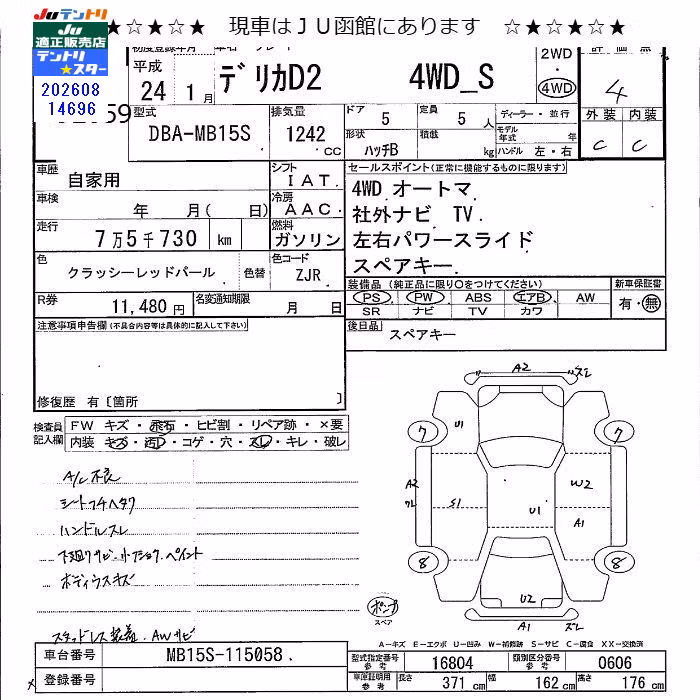 JUテントリ
JU
適正販売店
テントリ
★スター
202608
14696
★☆★☆★ 現車はＪＵ函館にあります ☆★☆★☆★
平成
24 1月
デリカD2 4WD_S
2WD
4WD
4
型式
DBA-MB15S
排気量
1242
cc
ドア
5
定員
5 人
形状
ハッチB
積載
kg
ディーラー・並行
モデル年式 年
ハンドル 左・右
外装 内装
C C
車歴
自家用
シフト
IAT.
車検
年 月( 日)
冷房
AAC.
走行
7万5千730 km
燃料
ガソリン
色
クラッシーレッドパール
色替
色コード
ZJR.
R券
11,480円
名変通知期限
月 日
セールスポイント(正常に機能するものに限ります)
4WD オートマ
社外ナビ TV.
左右パワースライド
スペアキー.
装備品 (純正品に限り○をつけてください)
PS・PW・ABS・エアB・AW
SR・ナビ・TV・カワ
新車保証書
有・無
後日品
スペアキー
注意事項申告欄(不具合内容等は具体的に記入して下さい)
修復歴 有〔箇所 〕
検査員記入欄
FW キズ・飛石・ヒビ割・リペア跡・×要
内装 キズ・汚レ・コゲ・穴・スレ・キレ・破レ
A/C不良
シートフチヘタリ
ハンドルスレ
下廻りサビ・小フショク.ペイント
ボディウスキズ
スタッドレス装着. AWサビ
A2 スレ
U1
7 7
A2
スレ
S1
W2
U1
A1
8 8
U2
A1 スレ
ポンプ
スペア
A－キズ E－エクボ U－凹み W－補修跡 S－サビ C－腐食 XX－交換済
車台番号
MB15S-115058.
登録番号
型式指定番号
参考
16804
類別区分番号
参考
0606
車庫証明用
参考
長さ
371 cm
幅
162 cm
高さ
176 cm